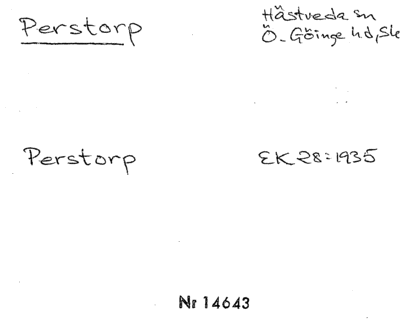 Perstorp
Hästveda sn
Ö. Göinge hd, Sk
Perstorp
EK 28:1935
Nr 14643